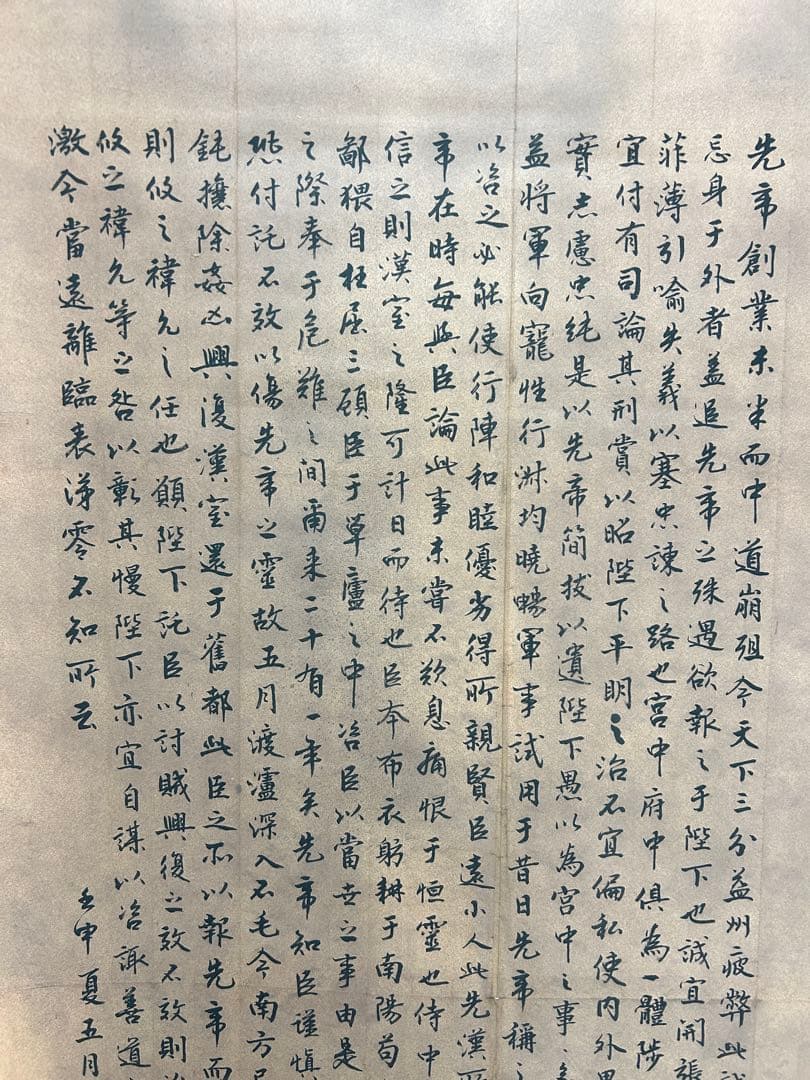 先帝創業未半而中道崩殂今天下三分益州疲弊此誠
忘身于外者蓋追先帝之殊遇欲報之于陛下也誠宜開張
菲薄引喻失義以塞忠諫之路也宮中府中俱為一體陟
宜付有司論其刑賞以昭陛下平明之治不宜偏私使內外異
實志慮忠純是以先帝簡拔以遺陛下愚以為宮中之事
益將軍向寵性行淑均曉暢軍事試用于昔日先帝稱之
以咨之必能使行陣和睦優劣得所親賢臣遠小人此先漢所
帝在時每與臣論此事未嘗不歎息痛恨于恒靈也侍中
信之則漢室之隆可計日而待也臣本布衣躬耕于南陽苟
鄙猥自枉屈三顧臣于草廬之中咨臣以當世之事由是
之際奉于危難之間爾來二十有一年矣先帝知臣謹慎
恐付託不效以傷先帝之靈故五月渡瀘深入不毛今南方已
鈍攘除姦凶興復漢室還于舊都此臣之所以報先帝而
則攸之禕允之任也願陛下託臣以討賊興復之效不效則
攸之禕允等之咎以彰其慢陛下亦宜自謀以咨諏善道
激今當遠離臨表涕零不知所云
壬申夏五月